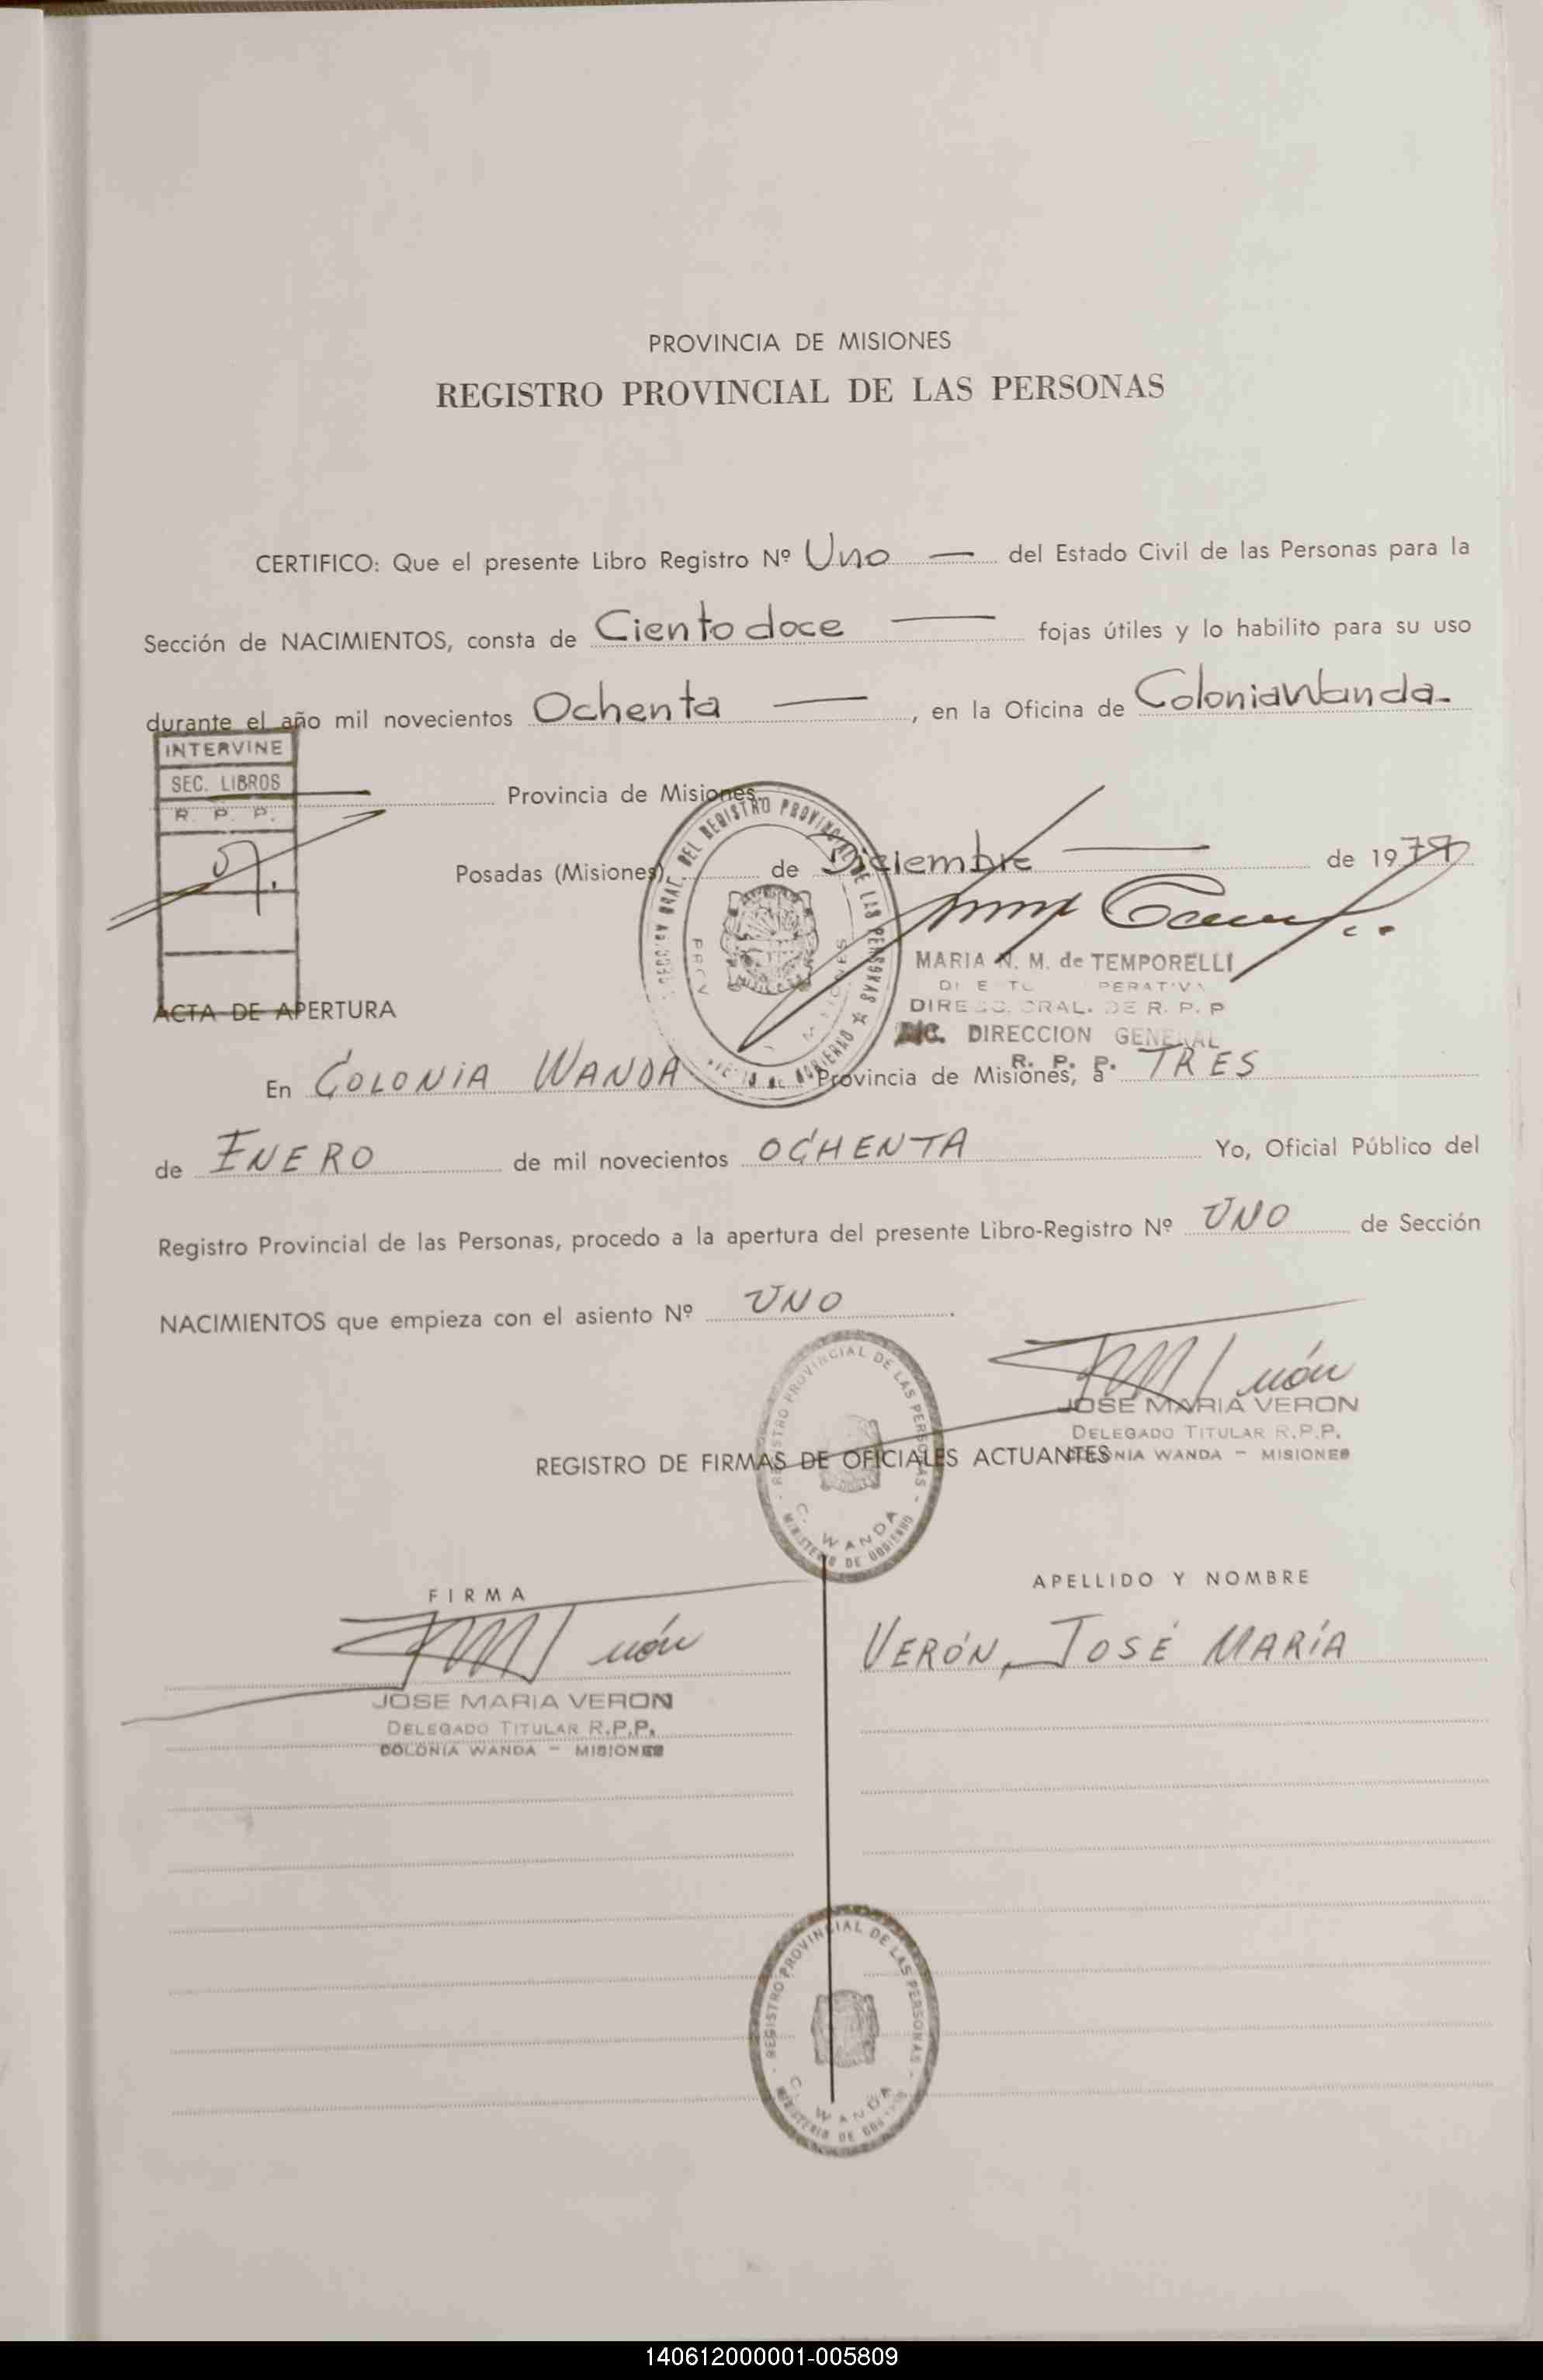 PROVINCIA DE MISIONES
REGISTRO PROVINCIAL DE LAS PERSONAS
CERTIFICO: Que el presente Libro Registro Nº Uno — del Estado Civil de las Personas para la
Sección de NACIMIENTOS, consta de Ciento doce — fojas útiles y lo habilito para su uso
durante el año mil novecientos Ochenta —, en la Oficina de Colonia Wanda-
INTERVINE
SEC. LIBROS
R. P. P.
Provincia de Misiones.
Posadas (Misiones) de Diciembre — de 1979
DEL REGISTRO PROVINCIAL DE LAS PERSONAS
MARIA N. M. de TEMPORELLI
DIRECC. GRAL. DE R. P. P
DIRECCION GENERAL
R. P. P.
ACTA DE APERTURA
En COLONIA WANDA Provincia de Misiones, a TRES
de ENERO de mil novecientos OCHENTA Yo, Oficial Público del
Registro Provincial de las Personas, procedo a la apertura del presente Libro-Registro Nº UNO de Sección
NACIMIENTOS que empieza con el asiento Nº UNO.
JOSE MARIA VERON
DELEGADO TITULAR R.P.P.
COLONIA WANDA - MISIONES
REGISTRO PROVINCIAL DE LAS PERSONAS
C. WANDA
MINISTERIO DE GOBIERNO
REGISTRO DE FIRMAS DE OFICIALES ACTUANTES
FIRMA
APELLIDO Y NOMBRE
VERÓN, JOSÉ MARÍA
JOSE MARIA VERON
DELEGADO TITULAR R.P.P.
COLONIA WANDA - MISIONES
REGISTRO PROVINCIAL DE LAS PERSONAS
C. WANDA
MINISTERIO DE GOBIERNO
140612000001-005809